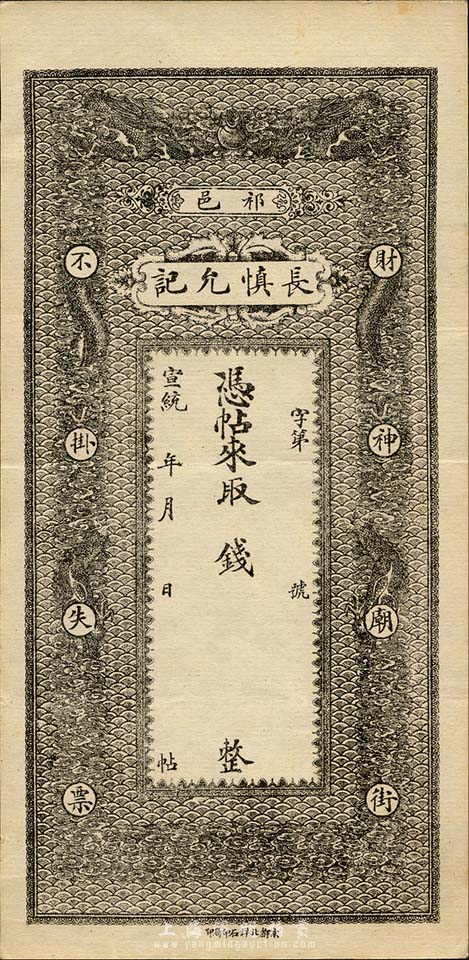 祁邑
長慎允記
財神廟街
字第 號
憑帖來取 錢 整
宣統 年 月 日 帖
不掛失票
www.yangmingauction.com